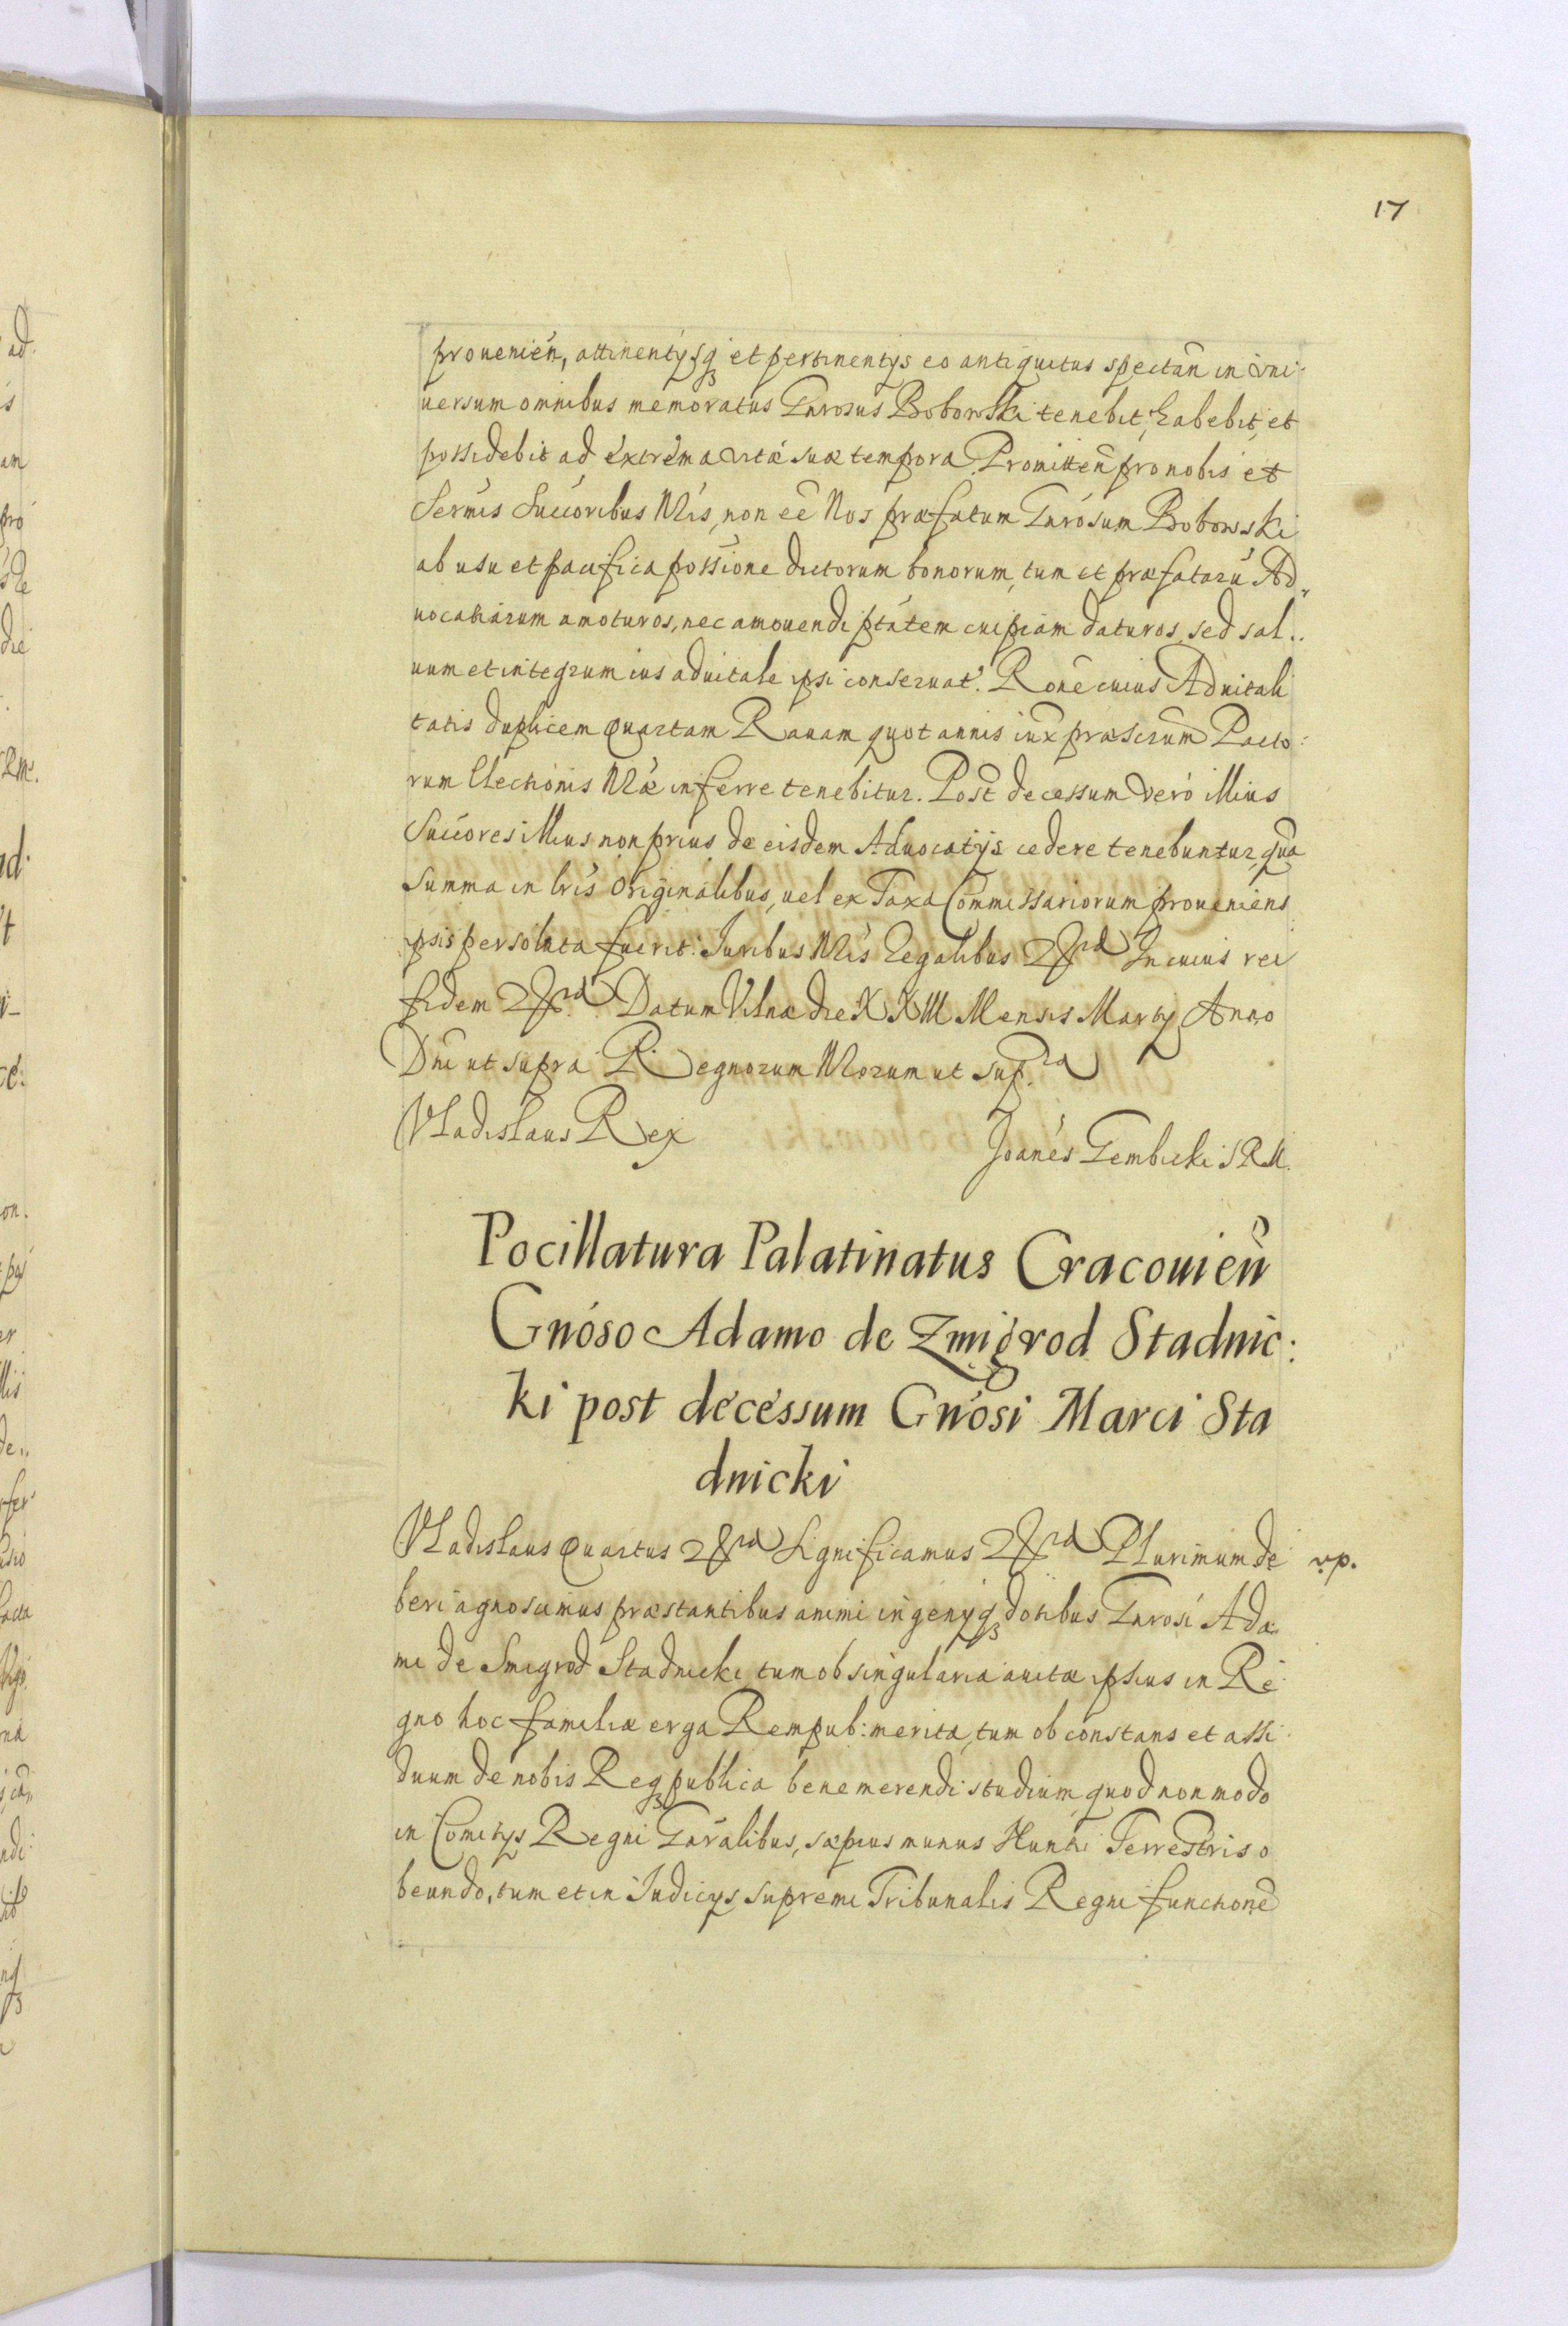 17
prouenień, attinentysq₃ et pertinentys eo antiquitus spectañ in vni-
uersum omnibus memoratus Gnrosus Bobowski tenebit, habebit, et
possidebit ad extrema vitæ suæ tempora. Promitteñ pro nobis et
Sermis Succoribus Nris, non eē Nos præfatum Gnrósum Bobowski
ab usu et pacifica possione dictorum bonorum, tum et præfatarū Ad„
uocatiarum amoturos, nec amouendi ptãtem cuipiam daturos, sed sal„
uum et integrum ius aduitale ipsi conseruat. Rone cuius Aduitali
tatis duplicem quartam Rauam quotannis iux præscrum Pacto:
rum Electionis Nræ inferre tenebitur. Post decessum verò illius
Succores illius non prius de eisdem Aduocatijs cedere tenebuntur, quā
summa in lris Originalibus, uel ex Taxa Commissariorum proueniens
ipsis persoluta fuerit. Iuribus Nris Regalibus &ra In cuius rei
fidem &ra. Datum Vilnæ die XXIII Mensis Marty Anno
Dni ut supra Regnorum Nrorum ut supra
Vladislaus Rex
Joanes Gembicki SRM.
Pocillatura Palatinatus Cracouień
Gnóso Adamo de Zmigrod Stadnic:
ki post decessum Gnósi Marci Sta
dnicki
Vladislaus Quartus &ra Significamus &ra Plurimum de
vp.
beri agnoscimus præstantibus animi ingenyq₃ dotibus Gnrosi Ada„
mi de Smigrod Stadnicki tum ob singularia auitæ ipsius in Re
gno hoc familiæ erga Rempub: merita, tum ob constans et assi
duum de nobis Req₃ publica bene merendi studium, quod non modo
in Comitys Regni Gnralibus, sæpius munus Nuntii Terrestris o
beundo, tum et in Iudicys supremi Tribunalis Regni functione